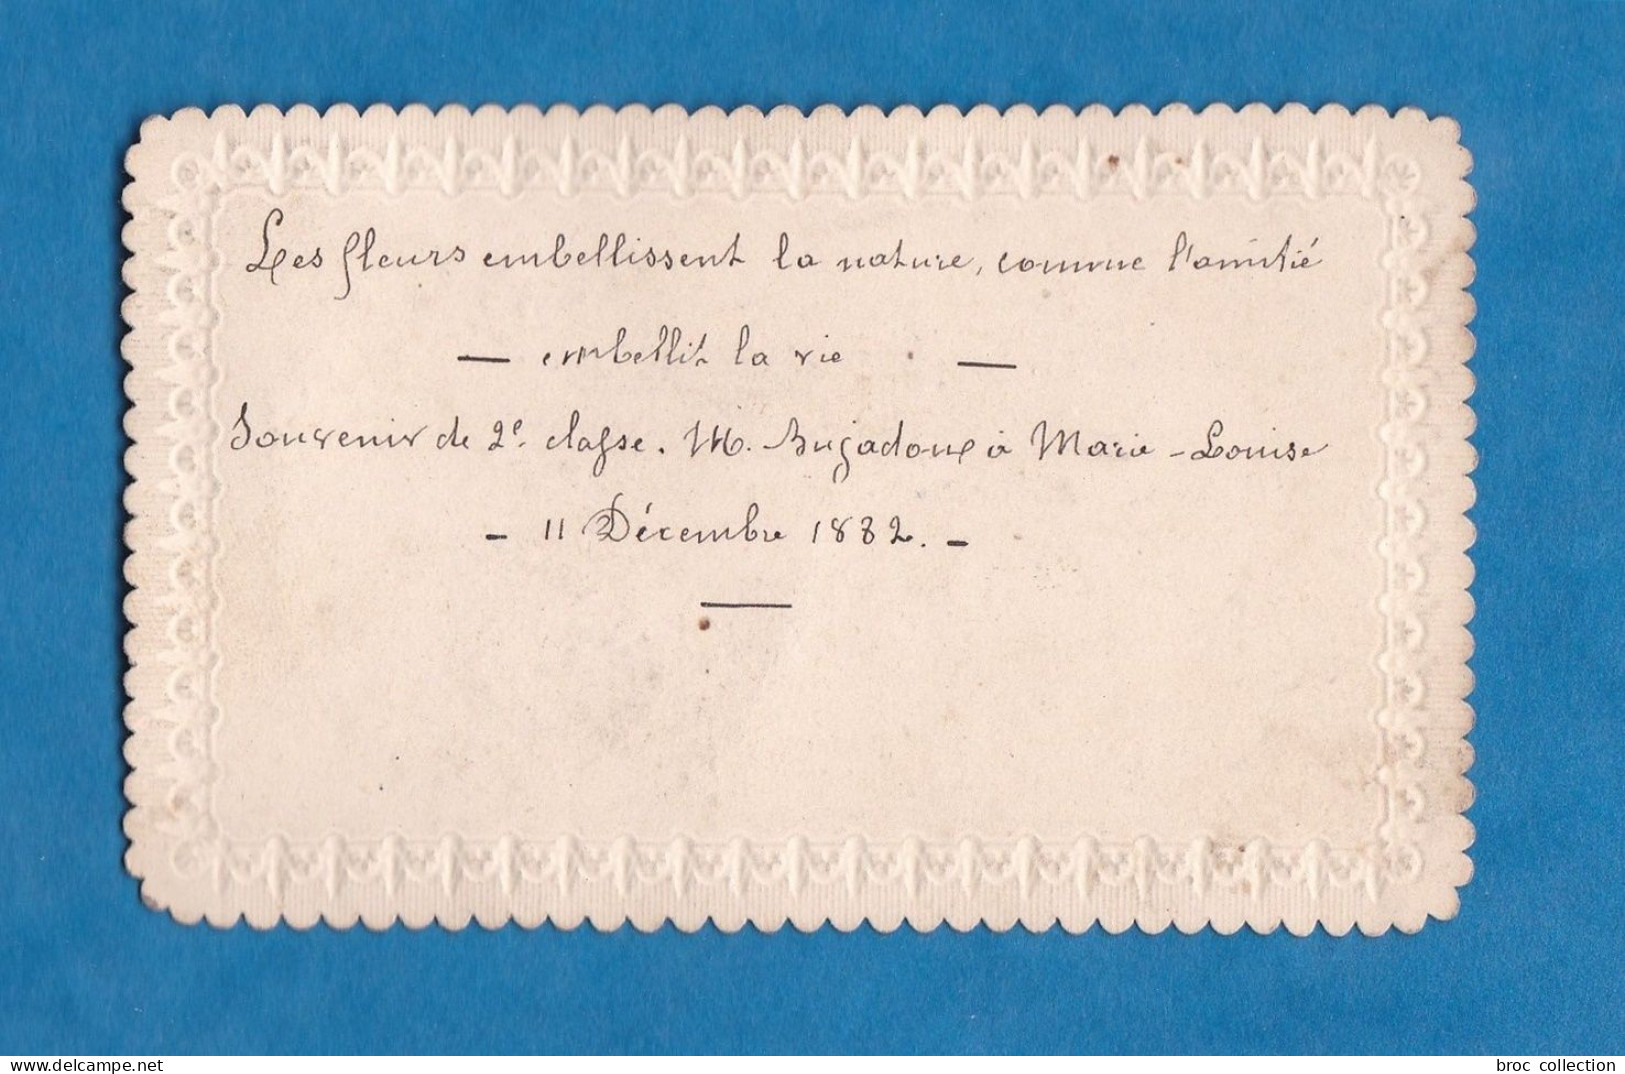 Les fleurs embellissent la nature, comme l'amitié
— embellit la vie —
Souvenir de 2e classe. M. Bugadoux à Marie-Louise
- 11 Décembre 1882. -
www.delcampe.net
broc collection